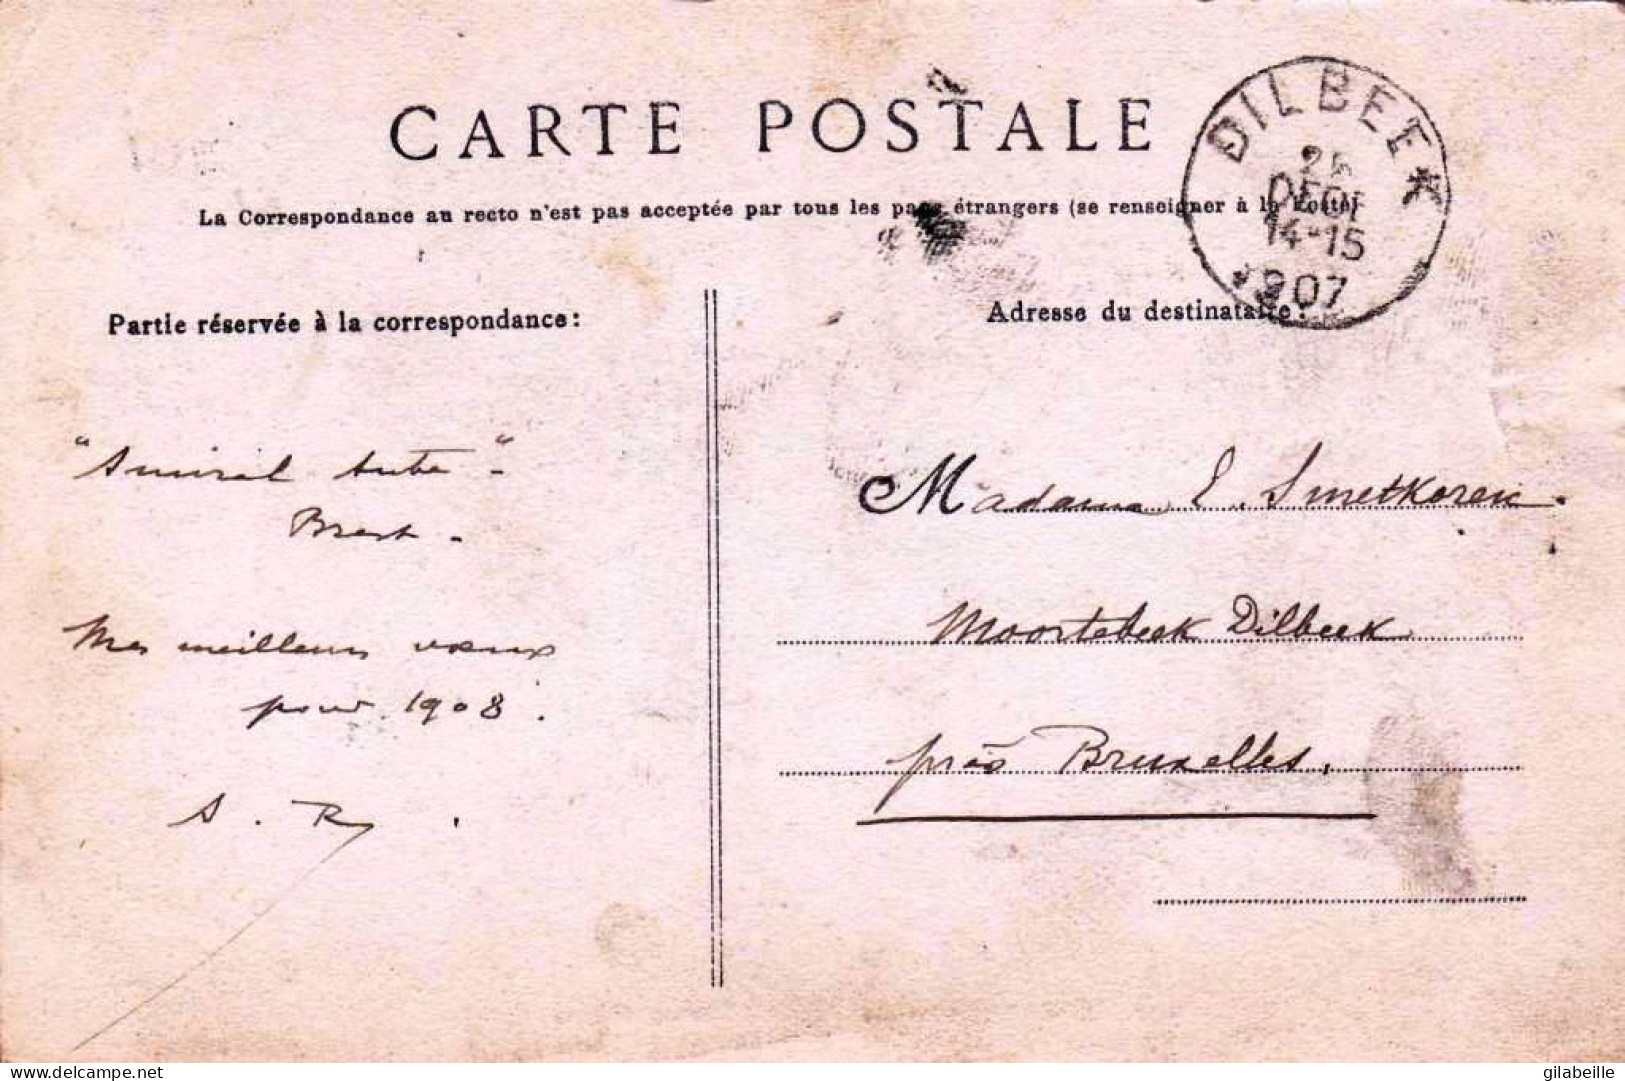 CARTE POSTALE
La Correspondance au recto n'est pas acceptée par tous les pays étrangers (se renseigner à la Poste)
DILBEEK
DECE
14-15
1907
Partie réservée à la correspondance:
Adresse du destinataire:
"Amiral Aube"-
Brest -
Mes meilleurs vœux
pour 1908.
A. R.
Madame E. Smetkoren.
Moortebeek Dilbeek
près Bruxelles.
delcampe.net
gilabeille